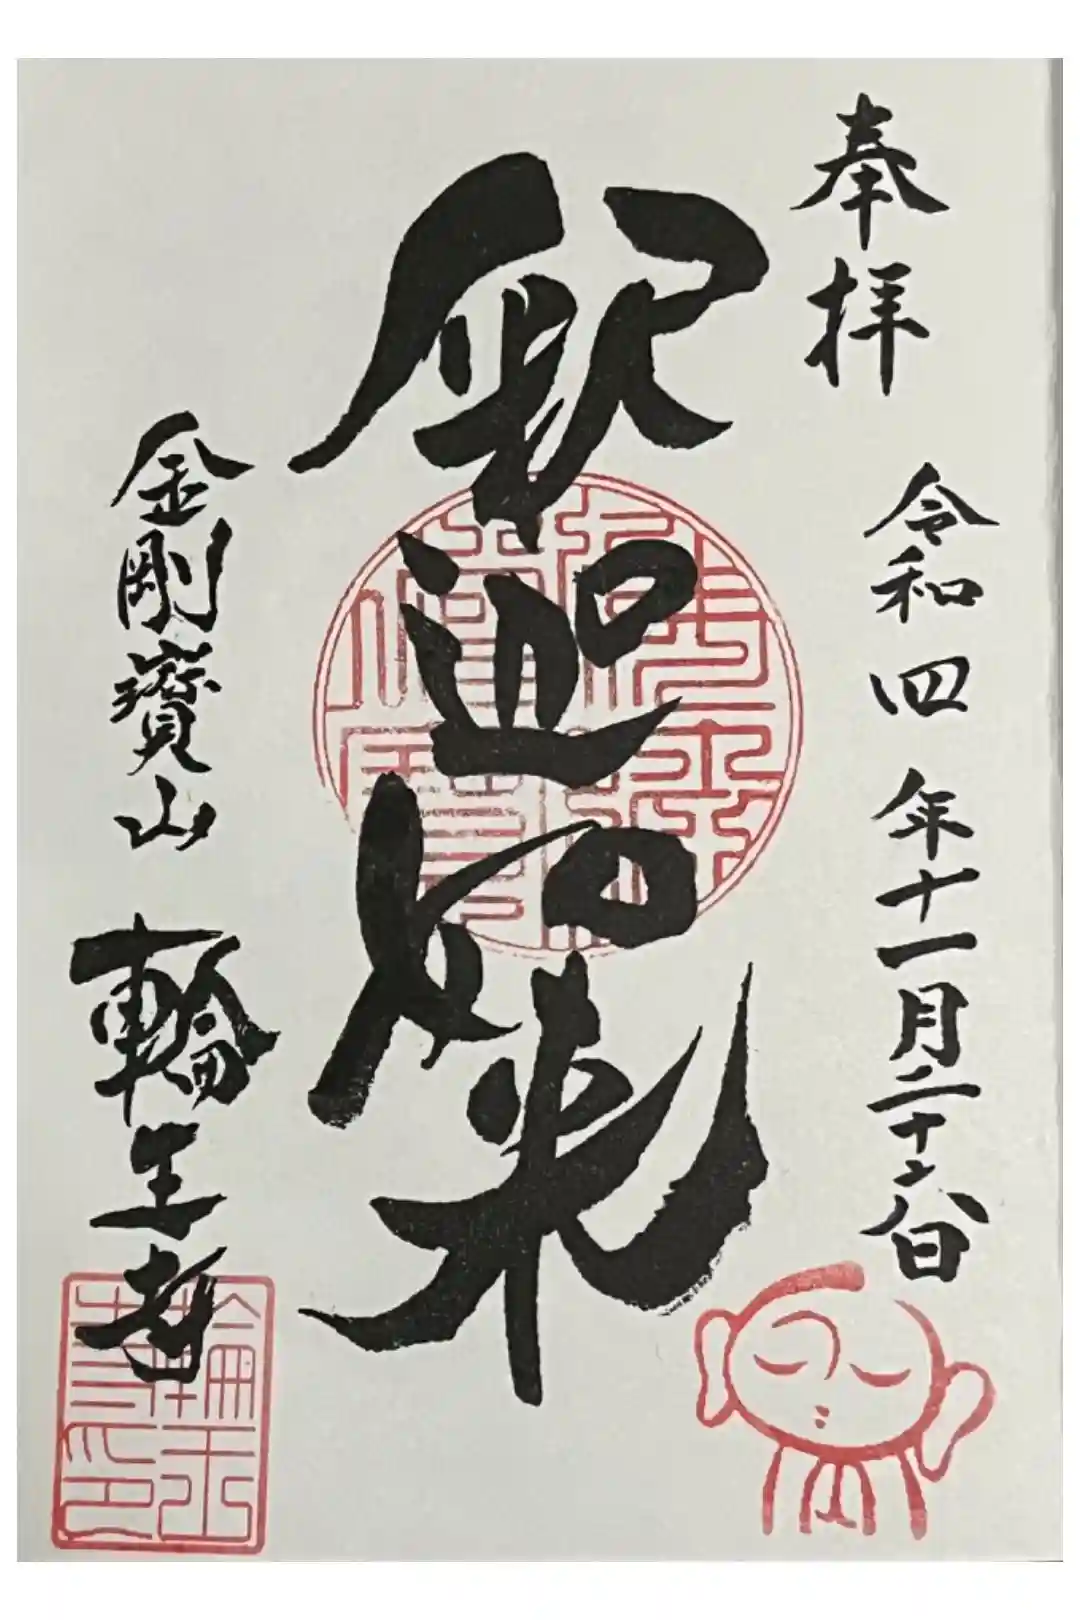 奉拝
令和四年十一月二十六日
釈迦如来
金剛寶山
輪王寺
輪王寺印